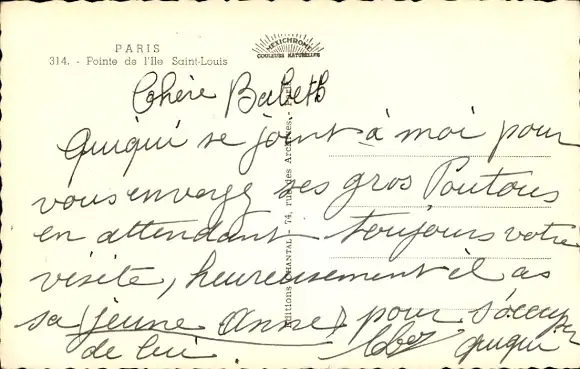 PARIS
314. - Pointe de l'Ile Saint-Louis
MEXICHROME
COULEURS NATURELLES
Editions CHANTAL - 74, rue des Archives. - Paris
Chère Babeth
Quiqui se joint à moi pour
vous envoyez ses gros Poutous
en attendant toujours votre
visite, heureusement il as
sa (jeune Anne) pour s'occuper
de lui. quiqui